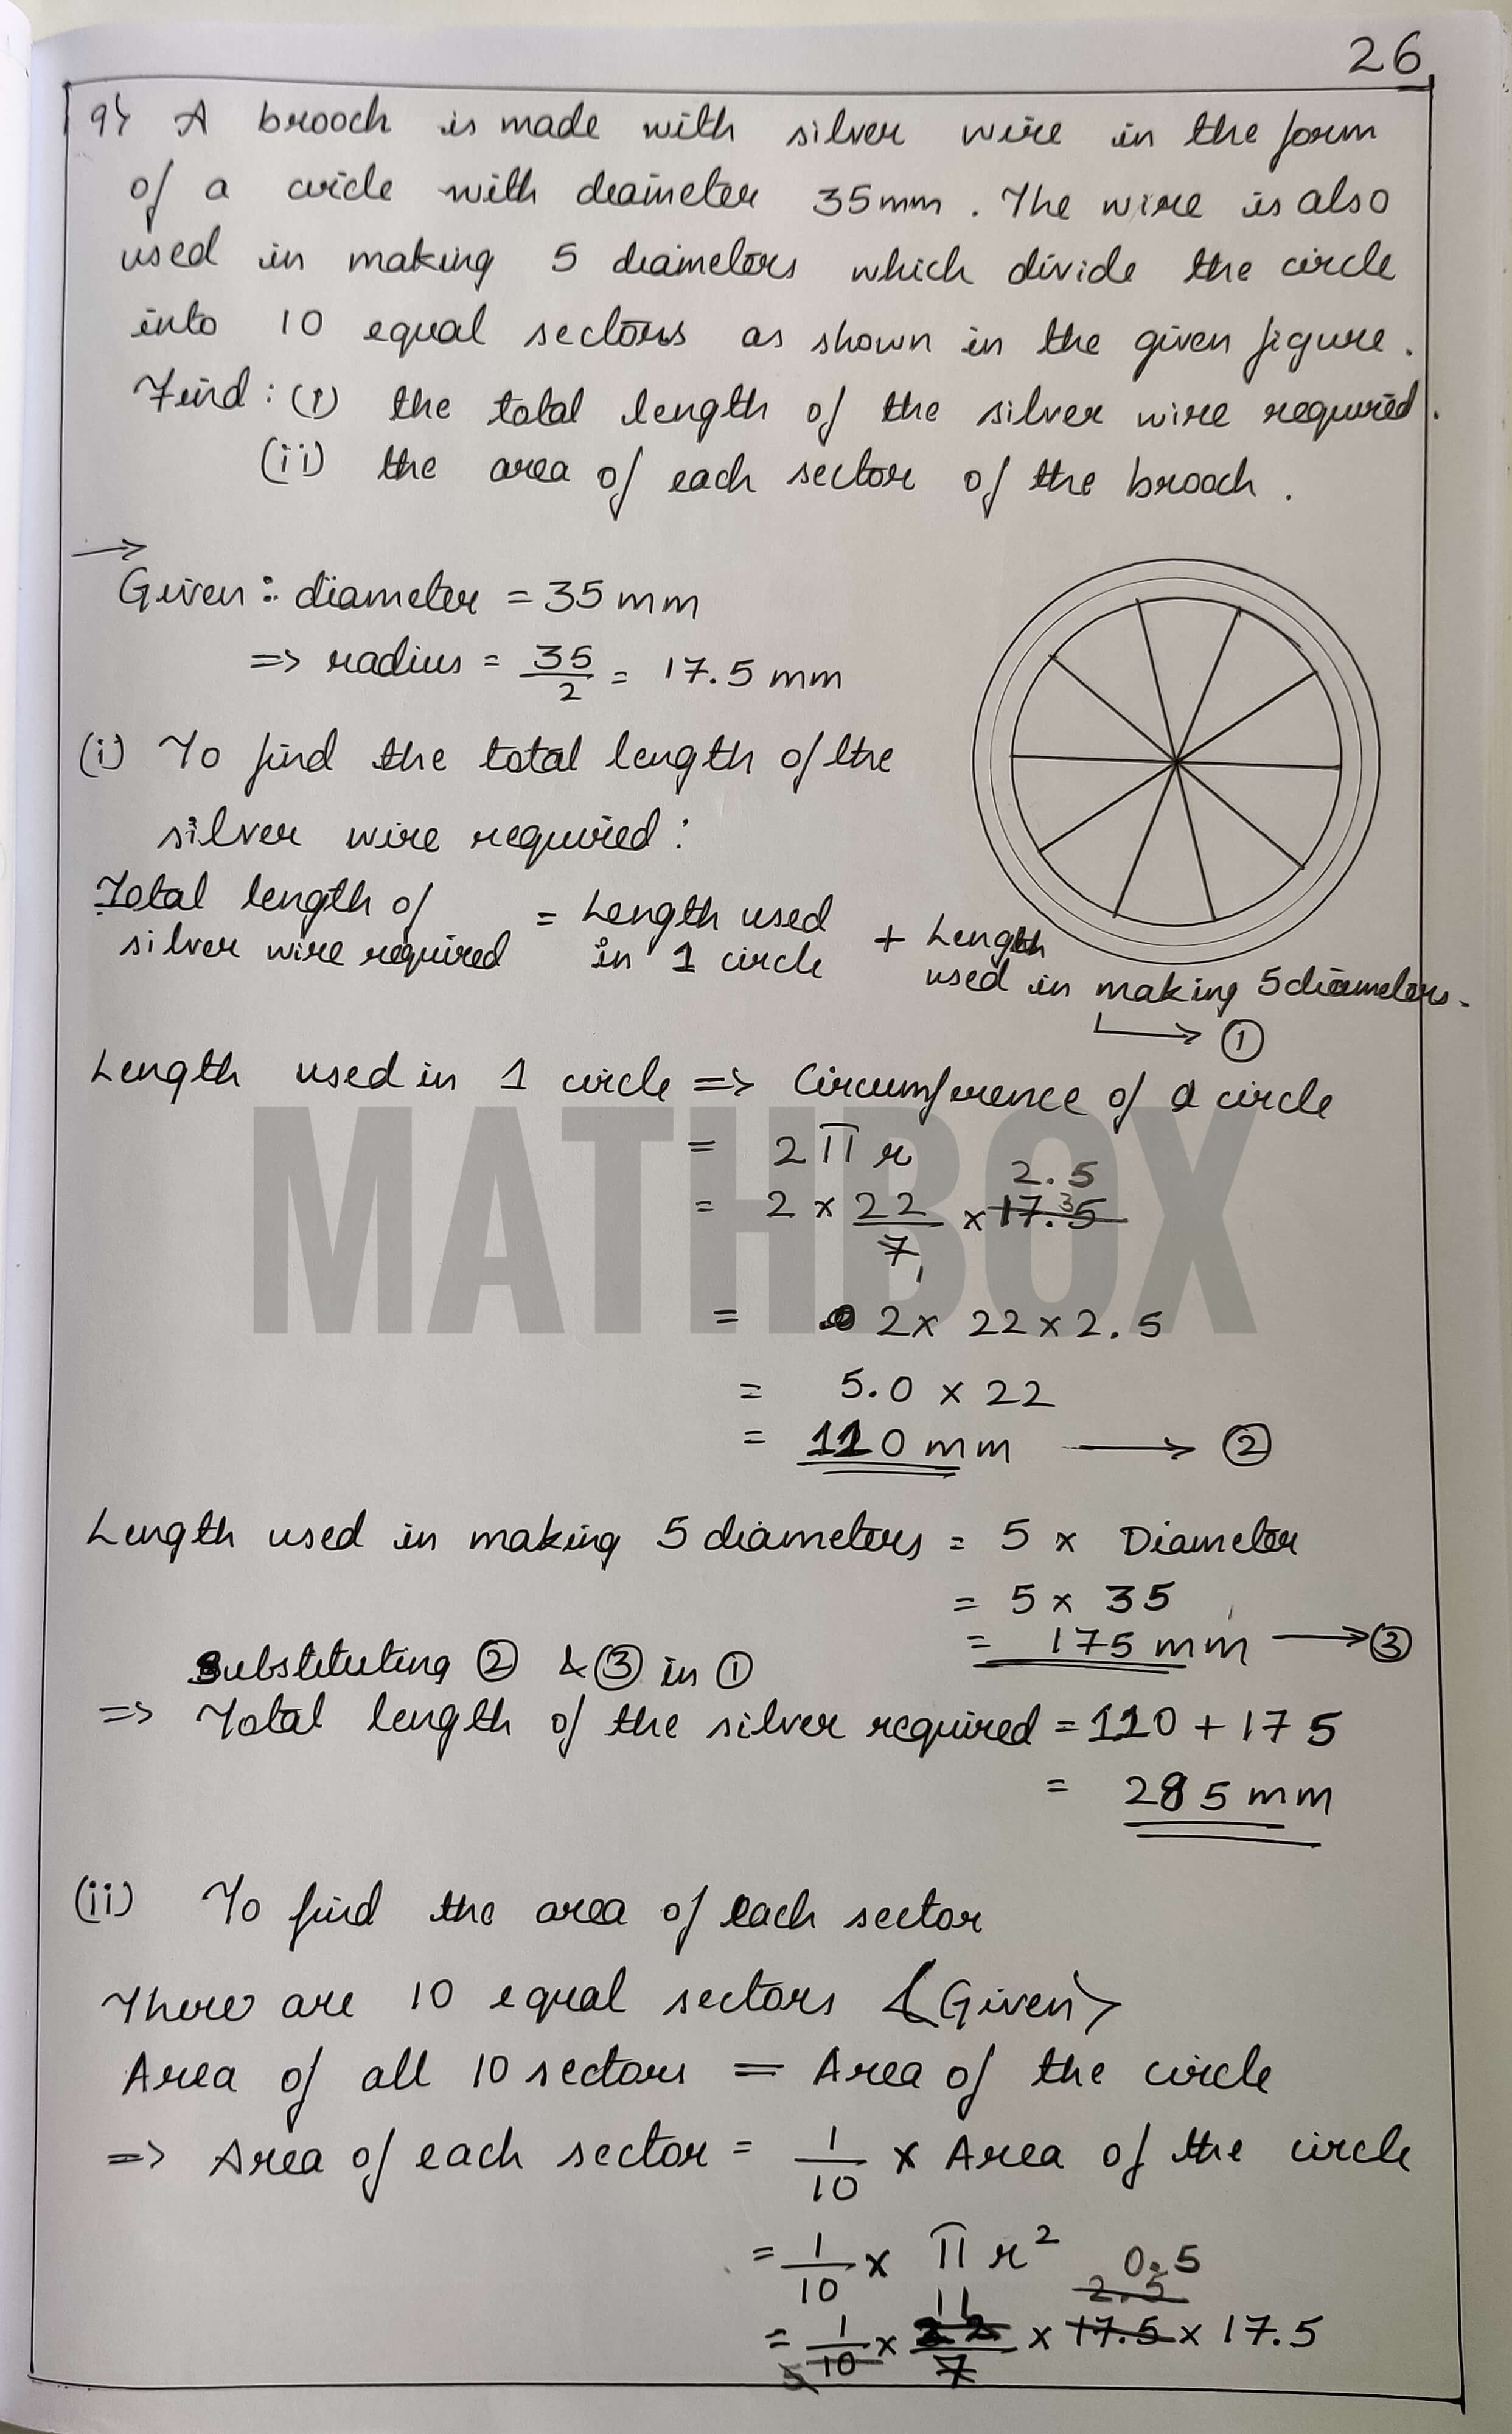 26
9) A brooch is made with silver wire in the form
of a circle with diameter 35mm. The wire is also
used in making 5 diameters which divide the circle
into 10 equal sectors as shown in the given figure.
Find: (i) the total length of the silver wire required.
(ii) the area of each sector of the brooch.
→
Given: diameter = 35 mm
=> radius = 35/2 = 17.5 mm
(i) To find the total length of the
silver wire required:
Total length of silver wire required = Length used in 1 circle + Length used in making 5 diameters.
→ ①
Length used in 1 circle => Circumference of a circle
= 2πr
2.5
= 2 × 22/7 × 17.5
1
= 2 × 22 × 2.5
= 5.0 × 22
= 110 mm → ②
Length used in making 5 diameters = 5 × Diameter
= 5 × 35
= 175 mm → ③
Substituting ② & ③ in ①
=> Total length of the silver required = 110 + 175
= 285 mm
(ii) To find the area of each sector
There are 10 equal sectors {Given}
Area of all 10 sectors = Area of the circle
=> Area of each sector = 1/10 × Area of the circle
= 1/10 × πr²
0.5
11 2.5
= 1/10 × 22/7 × 17.5 × 17.5
5
MATHBOX